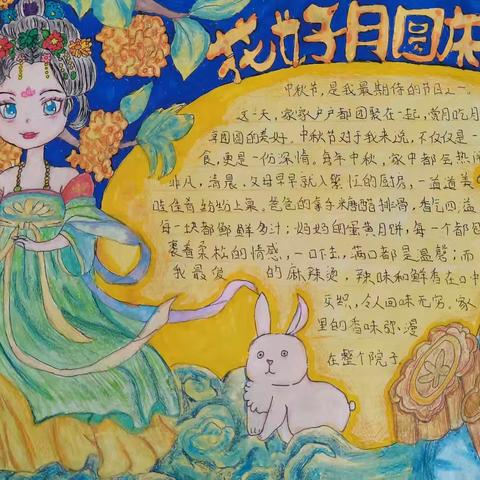 花好月圆庆
中秋节，是我最期待的节日之一。
这一天，家家户户都团聚在一起，赏月吃月
享团圆的美好。中秋节对于我来说，不仅仅是一
食，更是一份深情。每年中秋，家中都会热闹
非凡，清晨，父母早早就入繁忙的厨房，一道道美
味佳肴纷纷上桌。爸爸的拿手糖醋排骨，香气四溢
每一块都鲜多汁；妈妈的蛋黄月饼，每一个都包
裹着柔软的情感，一口下去，满口都是温馨；而
我最爱的麻辣烫，辣味和鲜香在口中
交织，令人回味无穷。家
里的香味弥漫
在整个院子